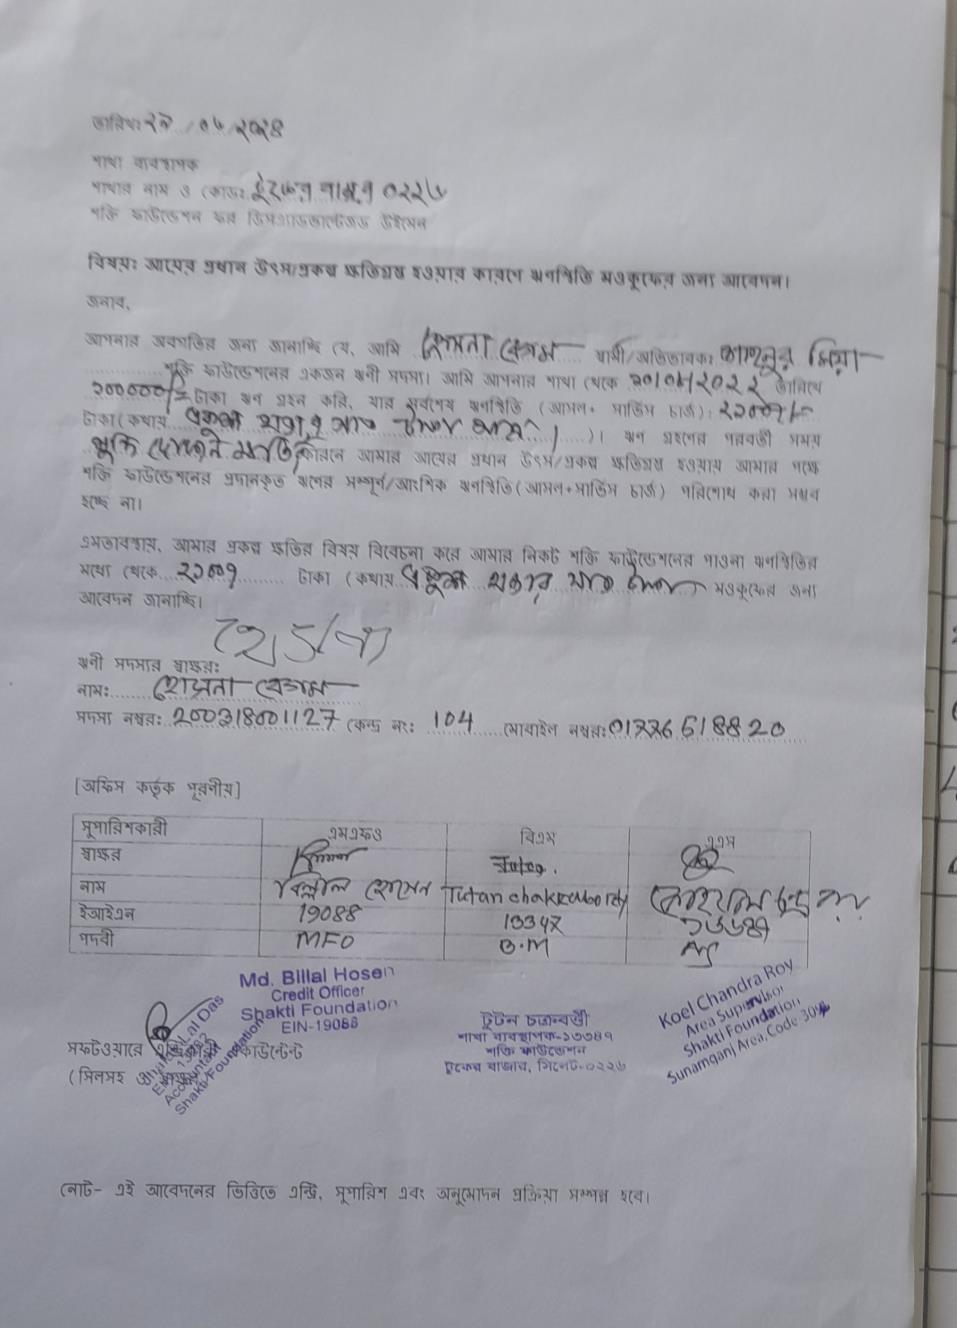 তারিখঃ ২৯/০৬/২০২৪
শাখা ব্যবস্থাপক
শাখার নাম ও কোডঃ ০২২৬
শক্তি ফাউন্ডেশন ফর ডিসএ্যাডভান্টেজড উইমেন
বিষয়ঃ আয়ের প্রধান উৎস/প্রকল্প ক্ষতিগ্রস্ত হওয়ার কারণে ঋণস্থিতি মওকুফের জন্য আবেদন।
জনাব,
আপনার অবগতির জন্য জানাচ্ছি যে, আমি হোসনা বেগম স্বামী/অভিভাবকঃ মিয়া
শক্তি ফাউন্ডেশনের একজন ঋণী সদস্য। আমি আপনার শাখা থেকে তারিখে
টাকা ঋণ গ্রহন করি, যার সর্বশেষ ঋণস্থিতি (আসল+ সার্ভিস চার্জ)ঃ ২১০০৭/=
টাকা(কথায় একুশ হাজার সাত টাকা মাত্র।)। ঋণ গ্রহণের পরবর্তী সময়
কারনে আমার আয়ের প্রধান উৎস/প্রকল্প ক্ষতিগ্রস্ত হওয়ায় আমার পক্ষে
শক্তি ফাউন্ডেশনের প্রদানকৃত ঋণের সম্পূর্ণ/আংশিক ঋণস্থিতি(আসল+সার্ভিস চার্জ) পরিশোধ করা সম্ভব
হচ্ছে না।
এমতাবস্থায়, আমার প্রকল্প ক্ষতির বিষয় বিবেচনা করে আমার নিকট শক্তি ফাউন্ডেশনের পাওনা ঋণস্থিতির
মধ্যে থেকে ২১০০৭ টাকা (কথায় একুশ হাজার সাত টাকা মওকুফের জন্য
আবেদন জানাচ্ছি।
ঋণী সদস্যের স্বাক্ষরঃ
নামঃ হোসনা বেগম
সদস্য নম্বরঃ 200318001127 কেন্দ্র নংঃ 104 মোবাইল নম্বরঃ 01776518820
[অফিস কর্তৃক পূরণীয়]
সুপারিশকারী এমএফও বিএম এএস
স্বাক্ষর
নাম বিল্লাল হোসেন Tutan chakraborty
ইআইএন 19088 13347 ১৬৬৪৭
পদবী MFO B.M AS
Md. Billal Hosen
Credit Officer
Shakti Foundation
EIN-19088
টুটন চক্রবর্ত্তী
শাখা ব্যবস্থাপক-১৩৩৪৭
শক্তি ফাউন্ডেশন
টুকের বাজার, সিলেট-০২২৬
Koel Chandra Roy
Area Supervisor
Shakti Foundation
Sunamganj Area, Code 304
সফটওয়ারে একাউন্টেন্ট
(সিলসহ
Lal Das
Accountant
Shakti Foundation
নোট- এই আবেদনের ভিত্তিতে এন্ট্রি, সুপারিশ এবং অনুমোদন প্রক্রিয়া সম্পন্ন হবে।